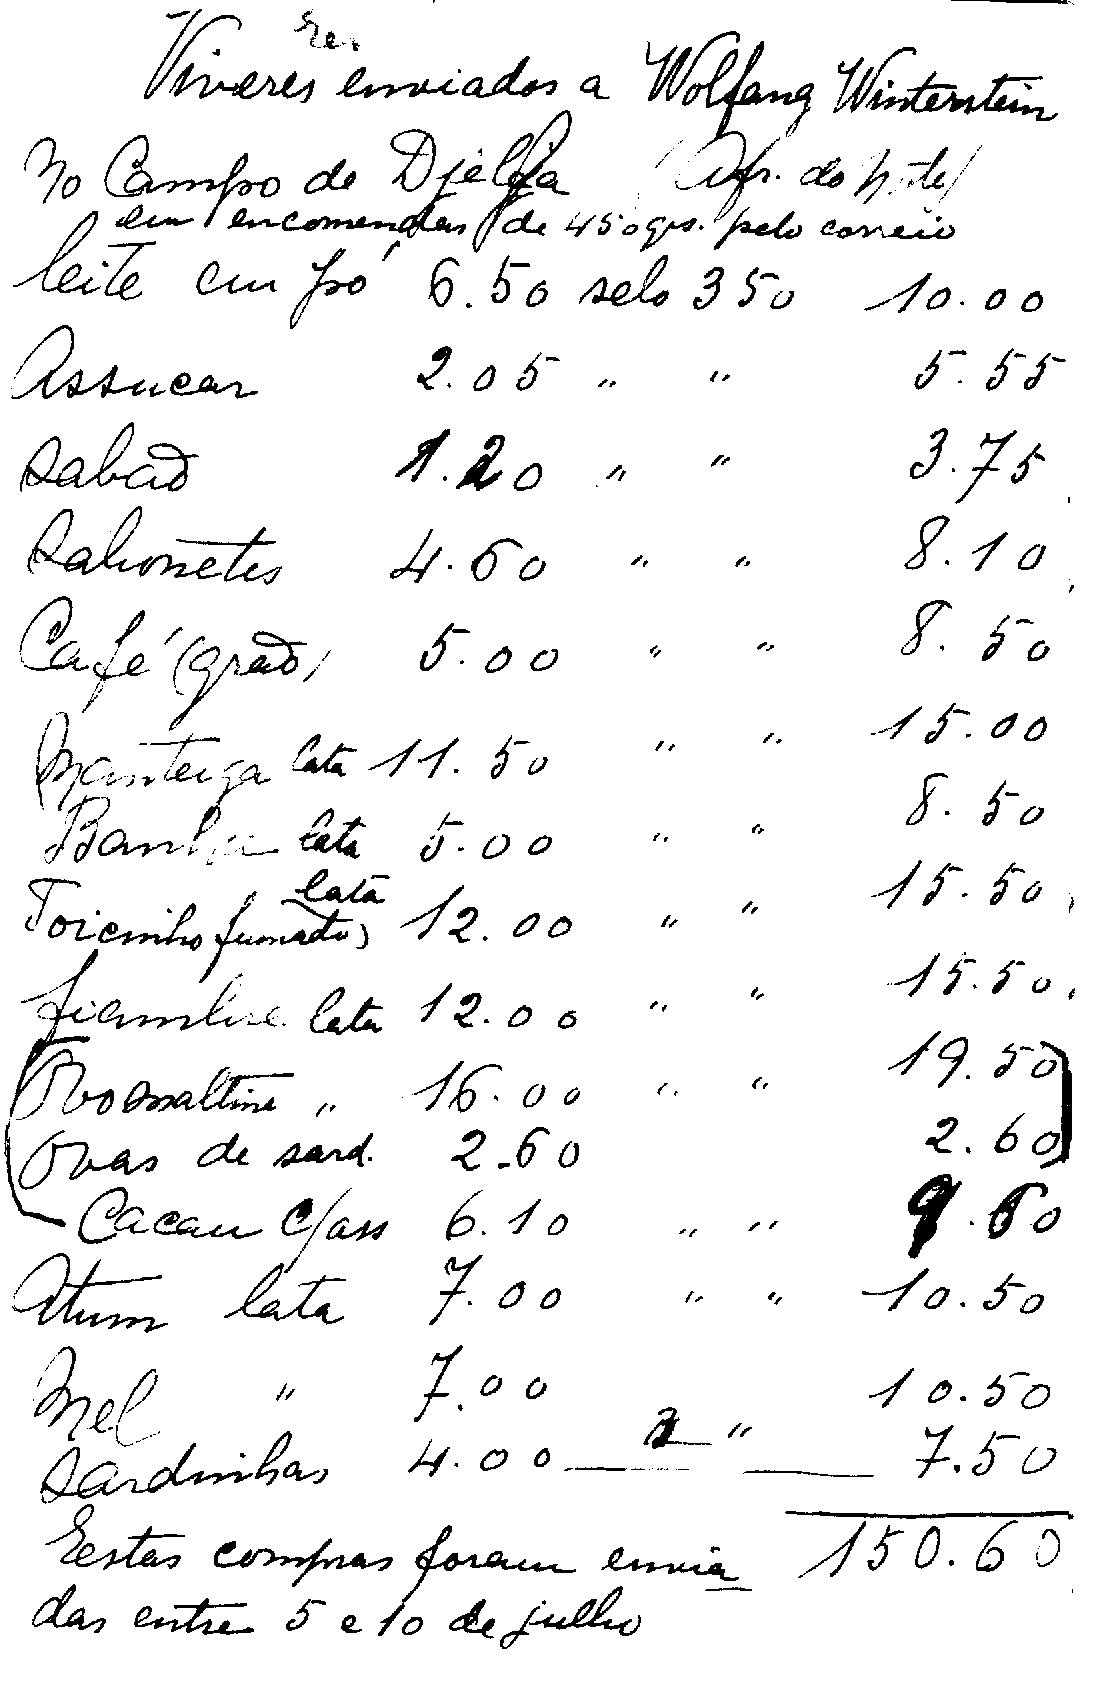 Viveres enviados a Wolfang Winterstein
No Campo de Djelfa (Afr. do Norte)
em encomendas de 450grs. pelo correio
leite em pó 6.50 selo 350 10.00
Assucar 2.05 " " 5.55
Sabaõ 1.20 " " 3.75
Sabonetes 4.60 " " 8.10
Café (graõ) 5.00 " " 8.50
Manteiga lata 11.50 " " 15.00
Banha lata 5.00 " " 8.50
lata
Toicinho fumado) 12.00 " " 15.50
fiambre lata 12.00 " " 15.50
Ovomaltine " 16.00 " " 19.50
Ovas de sard. 2.60 2.60
Cacau c/ass 6.10 " " 9.60
Atum lata 7.00 " " 10.50
Mel " 7.00 10.50
Sardinhas 4.00 " 7.50
150.60
Estas compras foram envia
das entre 5 e 10 de julho